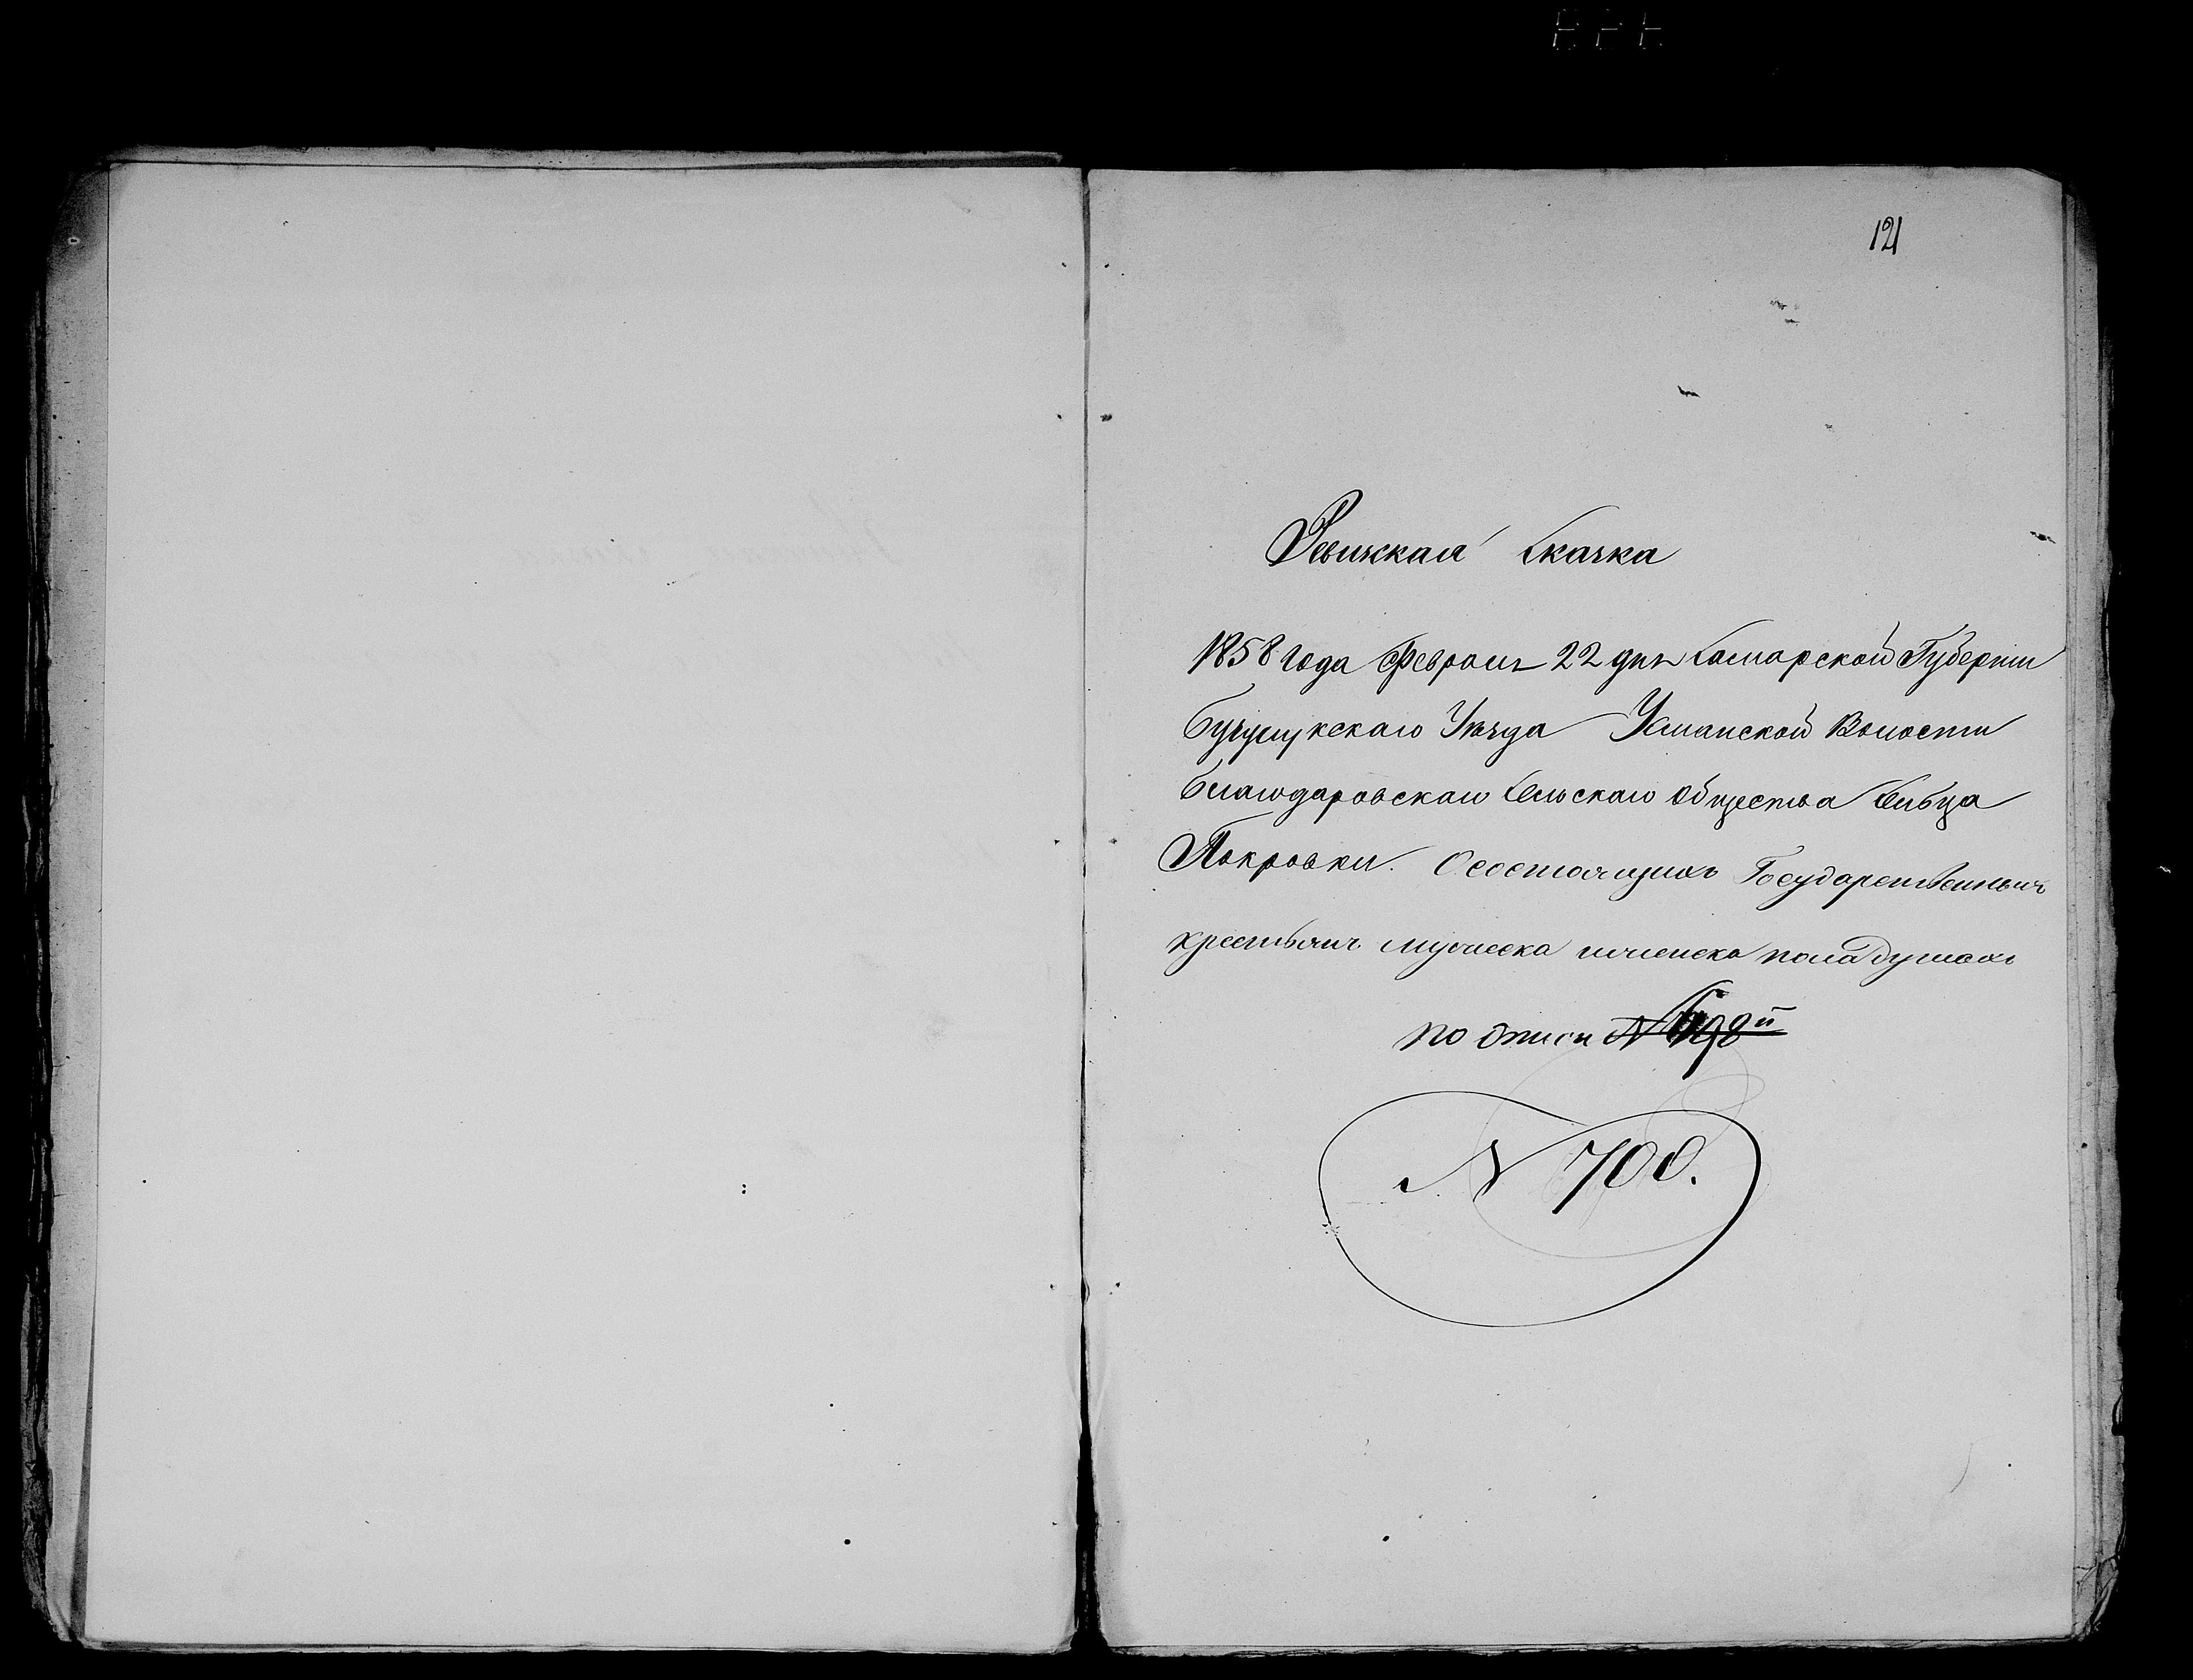 121
Ревижская Скаска
1858 года Февраля 22 дня Самарской Губернии
Бугурускскаго Уѣзда Усманской Волости
благодаровскаго Сельскаго Общества Сельца
Покровки. Осостоящихъ Государственныхъ
крестьянъ мужеска иженска пола душахъ
по описи №
№ 700.